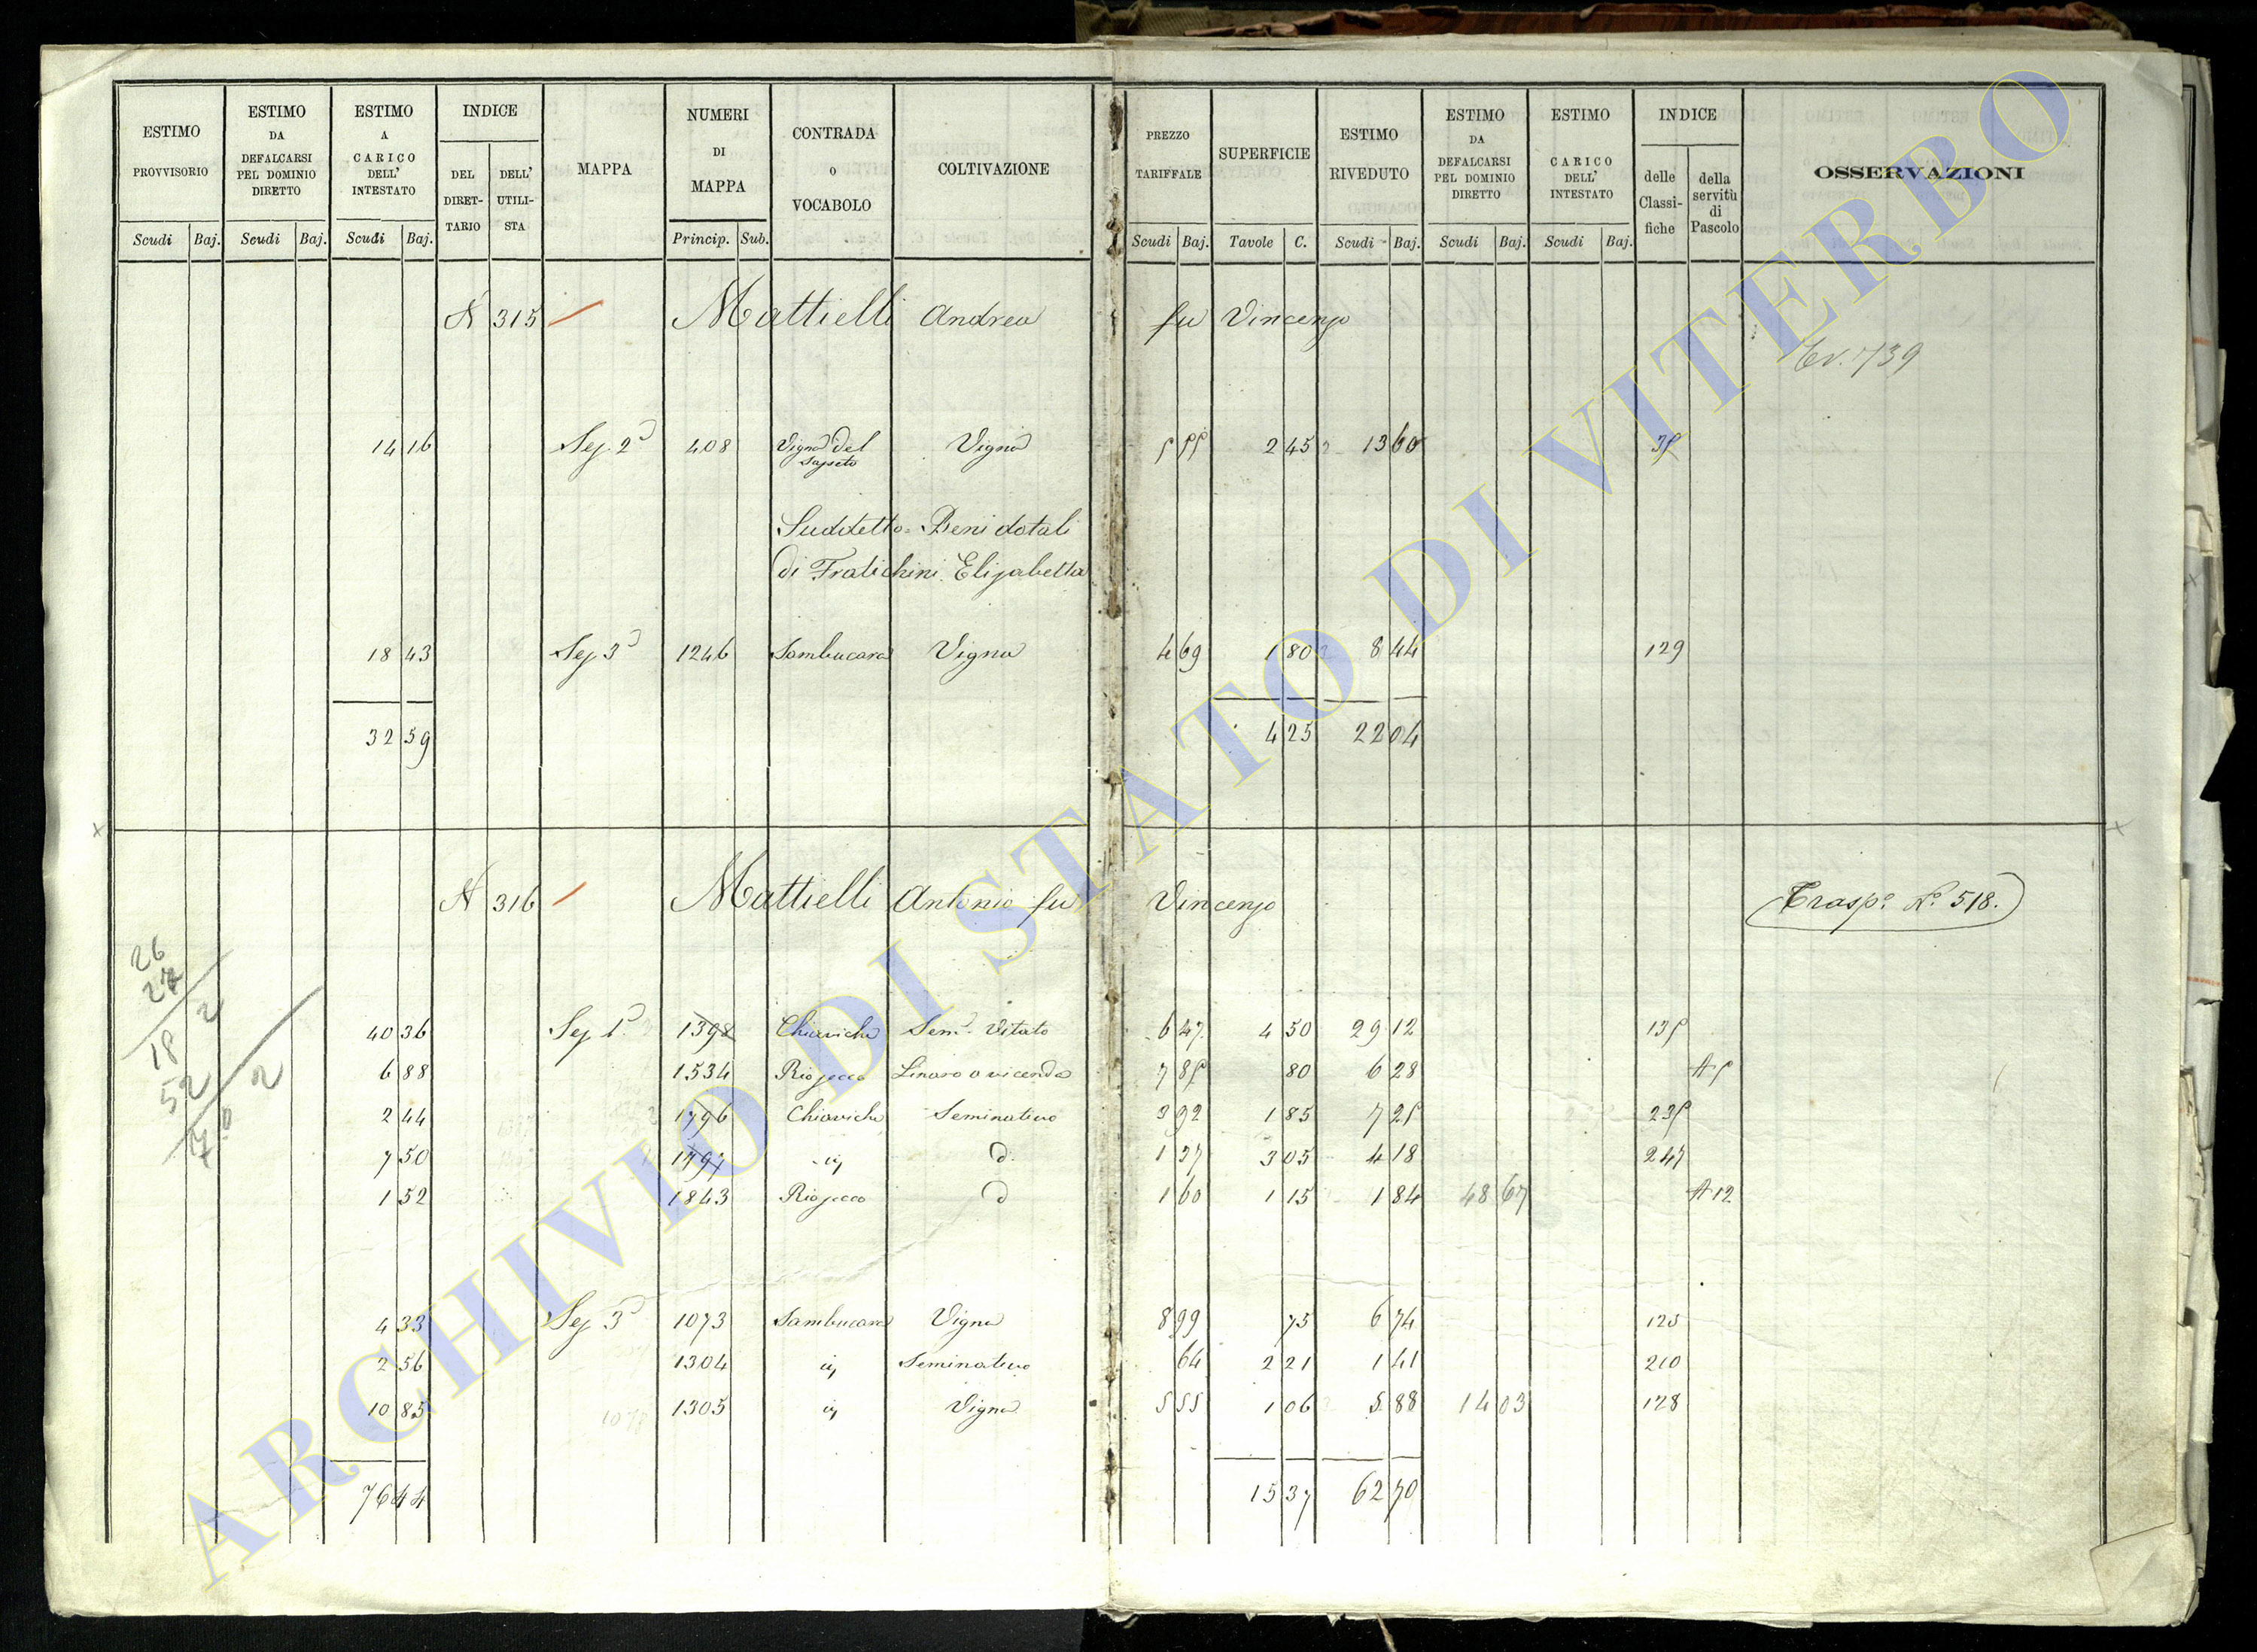 ESTIMO PROVVISORIO Scudi Baj.
ESTIMO DA DEFALCARSI PEL DOMINIO DIRETTO Scudi Baj.
ESTIMO A CARICO DELL' INTESTATO Scudi Baj.
INDICE DEL DIRET-TARIO DELL' UTILI-STA
MAPPA
NUMERI DI MAPPA Princip. Sub.
CONTRADA o VOCABOLO
COLTIVAZIONE
PREZZO TARIFFALE Scudi Baj.
SUPERFICIE Tavole C.
ESTIMO RIVEDUTO Scudi Baj.
ESTIMO DA DEFALCARSI PEL DOMINIO DIRETTO Scudi Baj.
ESTIMO CARICO DELL' INTESTATO Scudi Baj.
INDICE delle Classi-fiche della servitù di Pascolo
OSSERVAZIONI
N 315 Mattielli Andrea fu Vincenzo
739
14 16 Sez. 2a 408 Vigna del Vigna 5 55 2 45 13 60 35
Suddetto = Beni dotali
di Fratichini Elisabetta
18 43 Sez 3a 1246 Sambucara Vigna 4 69 1 80 8 44 129
32 59 4 25 22 04
N 316 Mattielli Antonio fu Vincenzo Trasp° N° 518.
26
27
18 2
52 2
40 36 Sez 1a 1398 Chiaviche Sem° Vitato 6 47 4 50 29 12 135
6 88 1534 Riosecco Linaro a vicenda 7 85 80 6 28 A 5
2 44 1796 Chiaviche Seminativo 3 92 1 85 7 25 235
7 50 1797 d 1 37 3 05 4 18 247
1 52 1843 Riosecco d 1 60 1 15 1 84 48 67 A 12
4 33 Sez 3a 1073 Sambucara Vigna 8 99 75 6 74 125
2 56 1304 Seminativo 64 2 21 1 41 210
10 85 1305 Vigna 5 55 1 06 5 88 14 03 128
76 44 15 37 62 70
ARCHIVIO DI STATO DI VITERBO